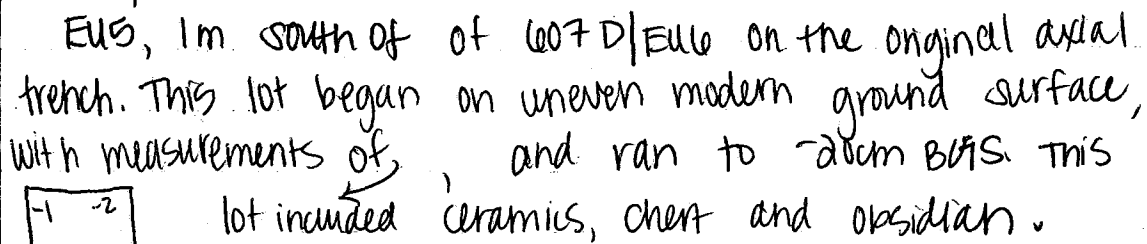 EU5, 1m south of of 607D/EU6 on the original axial
trench. This lot began on uneven modern ground surface,
with measurements of, , and ran to -20cm BGS. This
-1 -2 lot included ceramics, chert and obsidian.